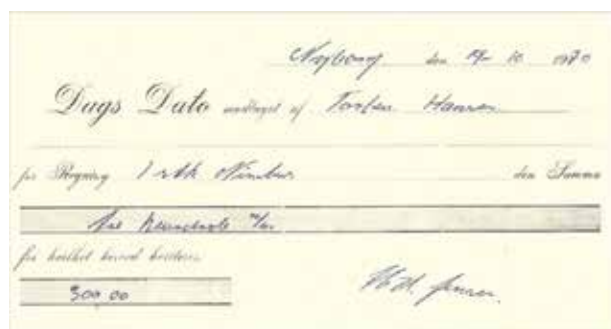 Nyborg den 19/10 1970
Dags Dato modtaget af Torben Hansen
for Regning 1 stk Nimbus den Summa
for hvilket herved kvitteres
300.00
Jensen.